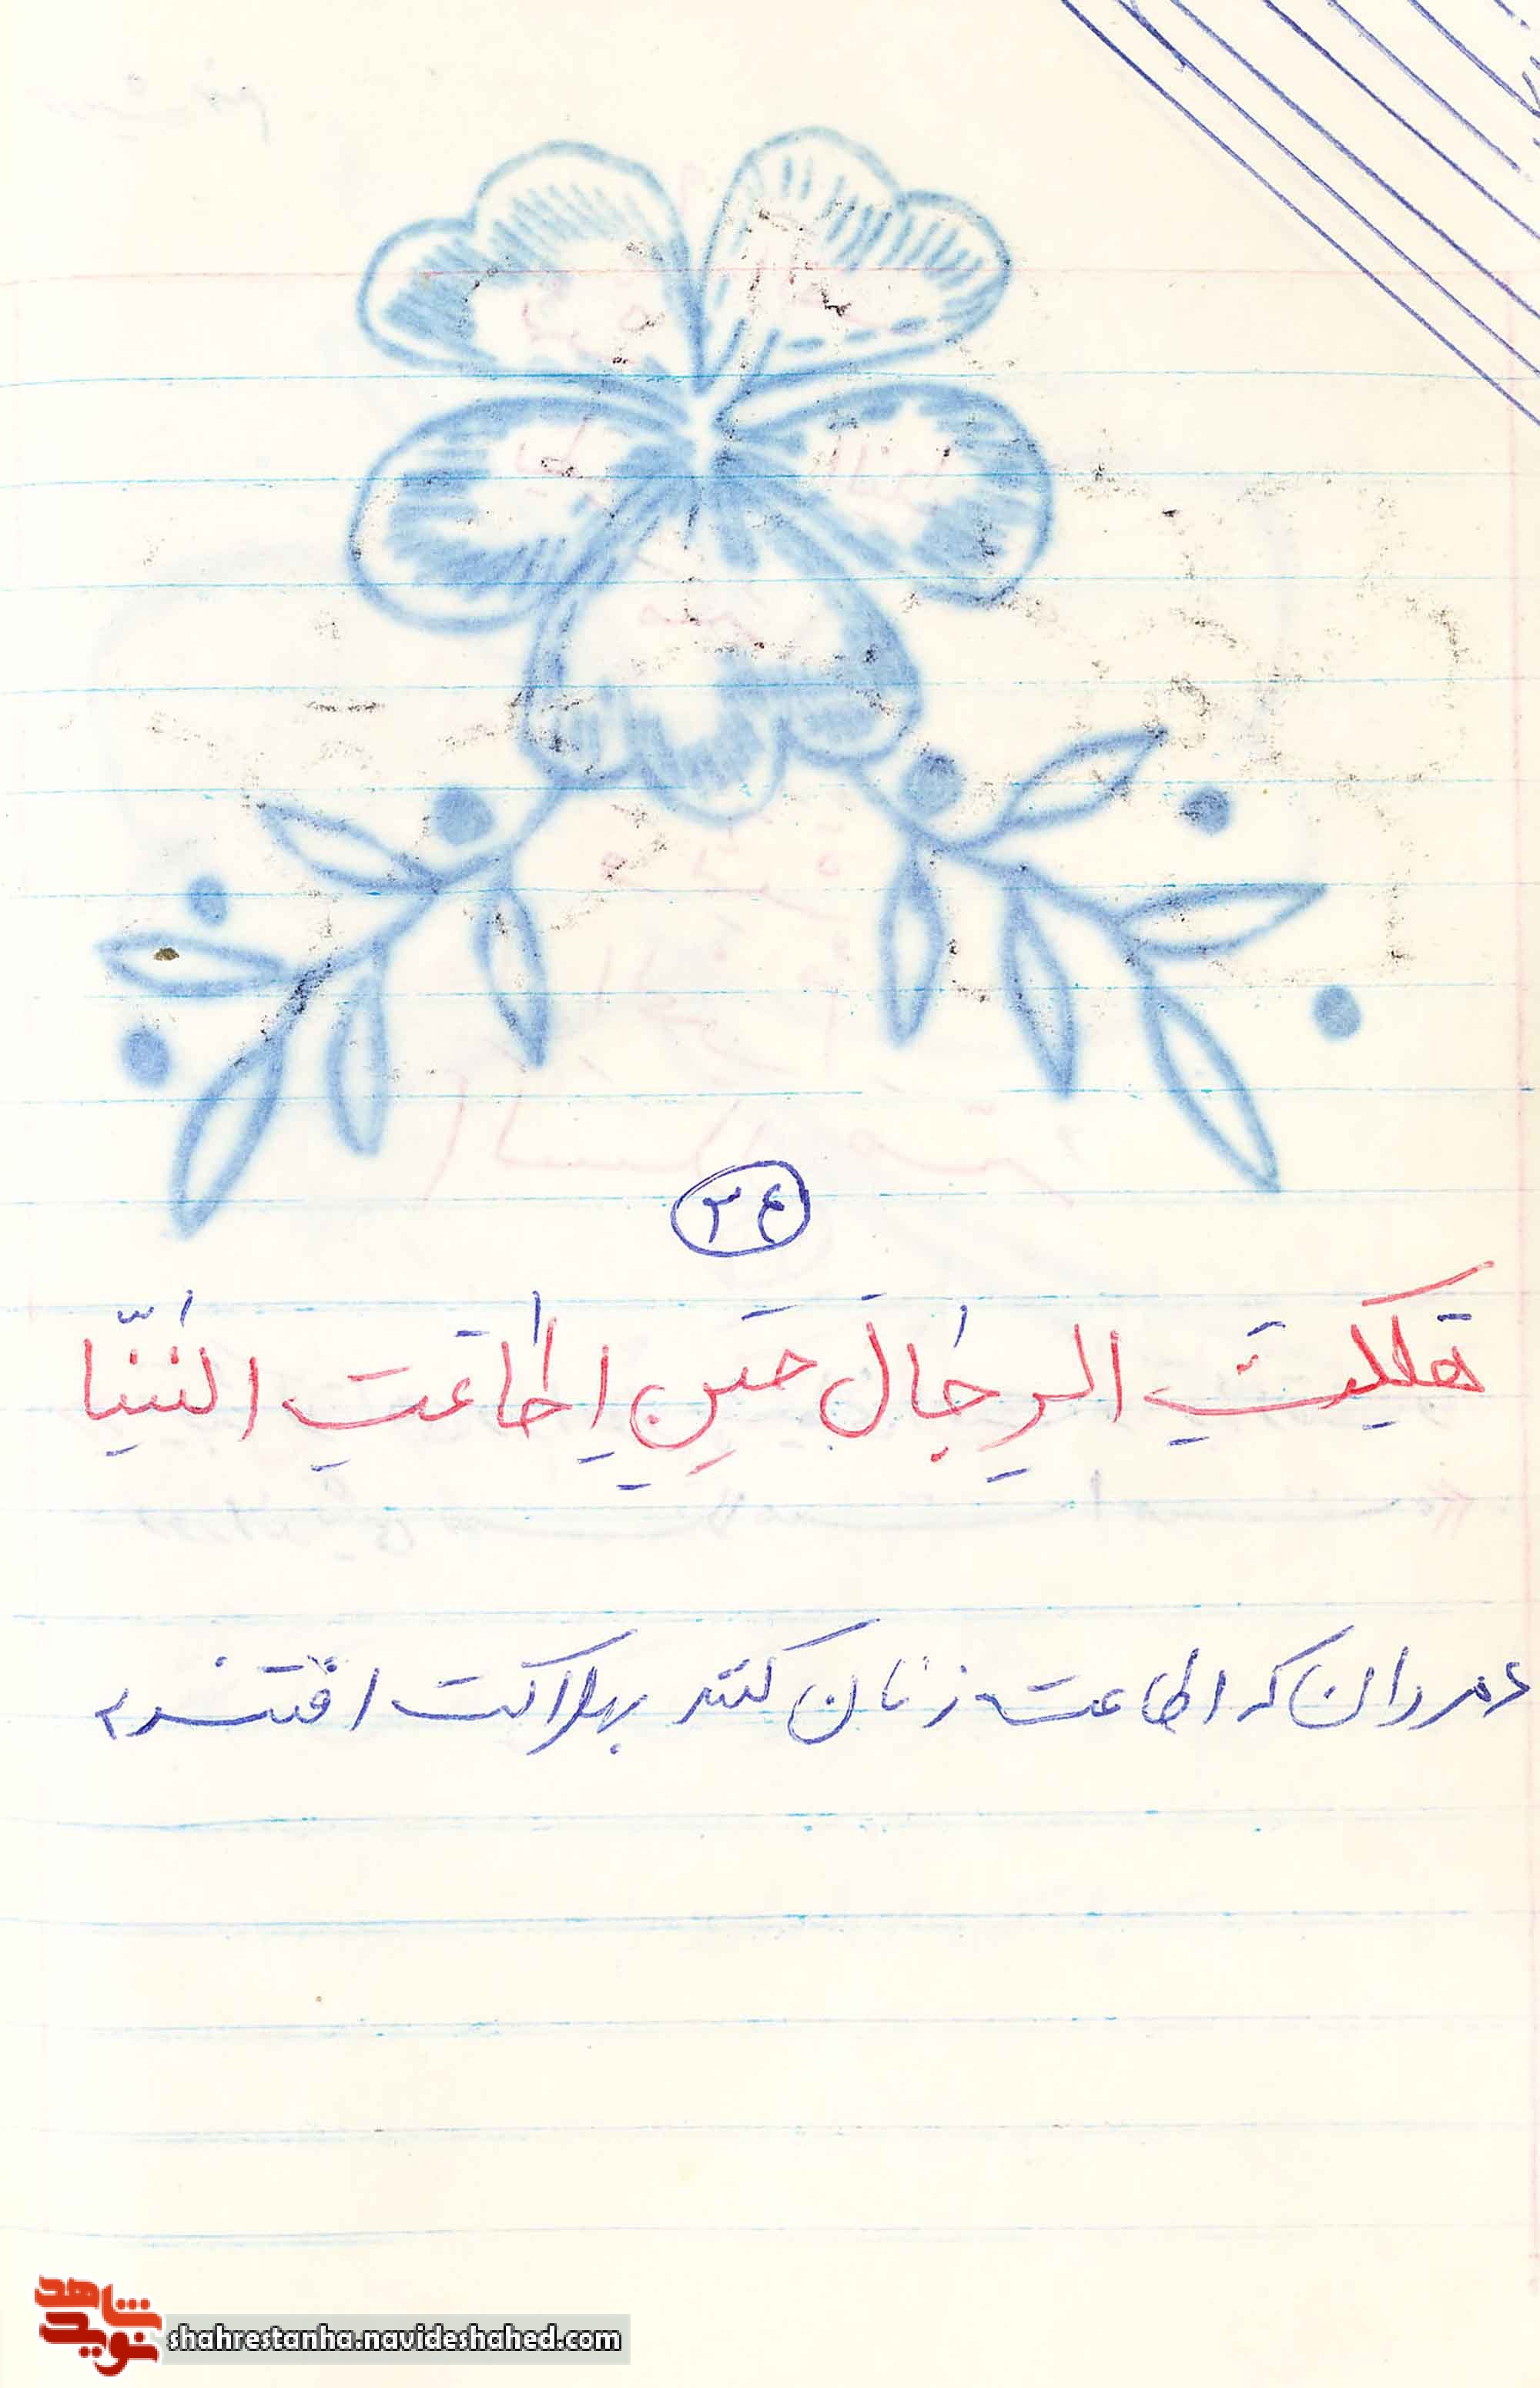 ۳۴
هَلَکَتِ الرِجٰالَ حَینِ اِطٰاعَتِ النِسّٰا
مردان که اطاعت زنان کنند بهلاکت افتند
شاهد
نوید
shahrestanha.navideshahed.com